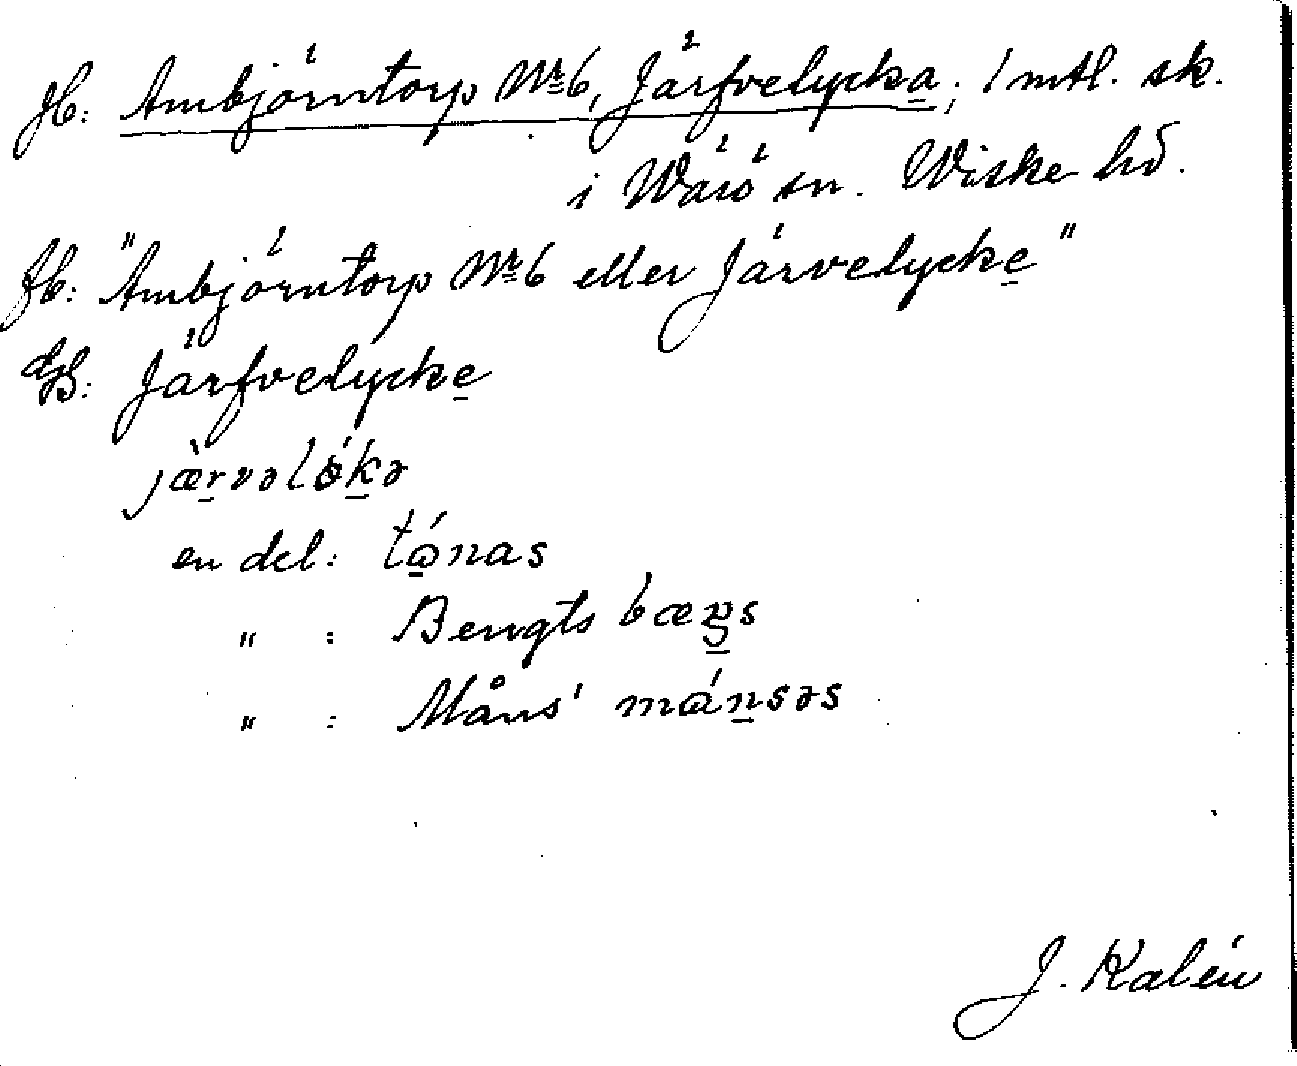 Jb: Ambjörntorp Nr 6, Järfvelycka; 1 mtl. sk.
i Wärö sn. Wiske hd.
Jb: "Ambjörntorp Nr 6 eller Järvelycke"
GB: Järfvelycke
jæ̀rvəlǿkə
en del: tɷ́nas
" : Bengts bæŋs
" : Måns' mɷ́nsəs
J. Kalén